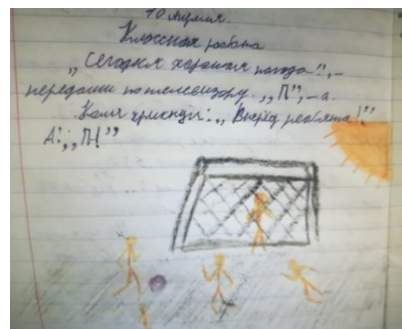 10 апреля.
Классная работа
„Сегодня хорошая погода", –
передали по телевизору. „П", – а.
Коля крикнул: „Вперёд ребята!"
А: „П!"